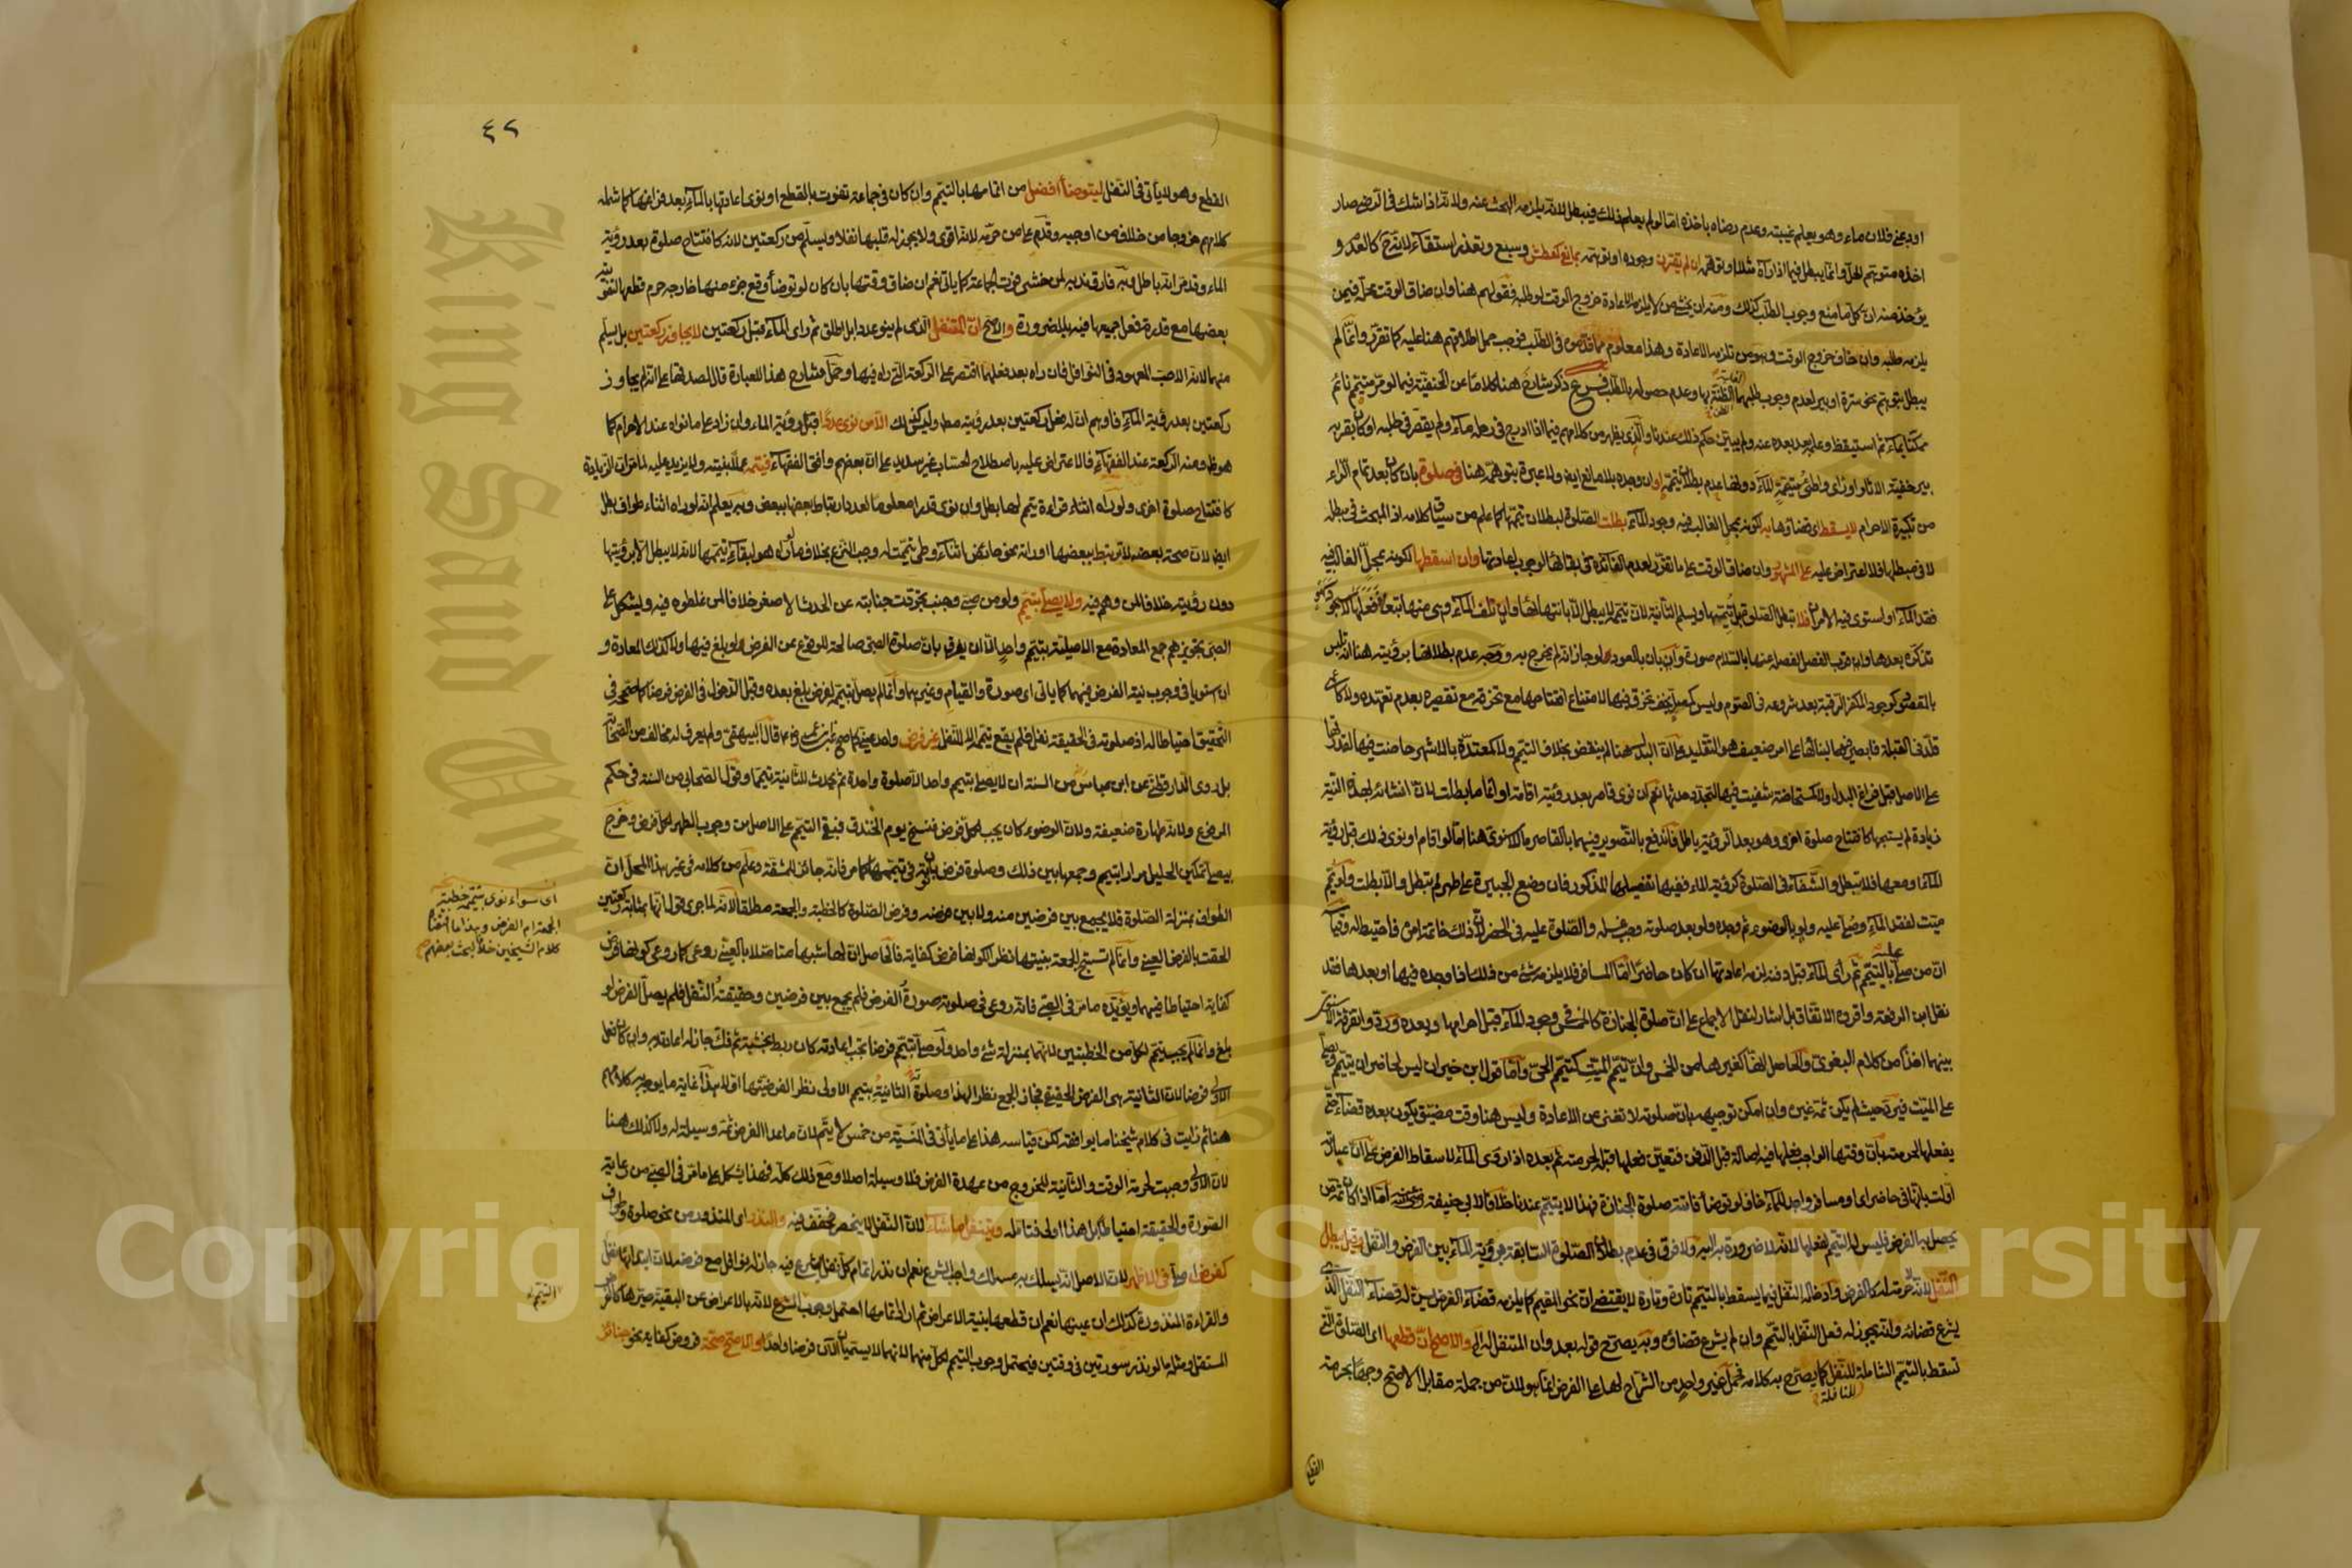 اودعني فلان ماء وهو يعلم غيبته وعدم رضاه باخذه اما لو لم يعلم ذلك فيبطل لانه يلزمه البحث عنه ولانه اذا شك في الرضى صار
اخذه متوهم الحل وانما يبطل فيما اذا رآه مثلا او توهمه ان لم يقترن وجوده او توهمه بمانع كعطش وسبع وتعذر استقاء لان كالعدم و
يؤخذ منه ان كل ما منع وجوب الطلب كذلك ومنه ان يخشى من لا يلزمه الاعادة خروج الوقت لو طلبه فقولهم هنا وان ضاق الوقت محله فيمن
يلزمه طلبه وان خاف خروج الوقت وهو من تلزمه الاعادة وهذا معلوم مما قدموه في الطلب فوجب حمل اطلاقهم هنا عليه كما تقرر وانما لم
يبطل بتوهم نحو سترة او بير لعدم وجوب طلبها لغلبة الظنة بها وعدم حصوله بالطلب فرع ذكر شارح هنا كلاما عن الحنفية فيما لو مر متيمم نائم
ممكنا بماء ثم استيقظ وعلم بعد بعده عنه ولم يبين حكم ذلك عندنا والذي يظهر من كلامهم فيما اذا ادرج في رحله ماء ولم يقصر في طلبه او كان بقربه
بير خفية الاثار او رأى واطئ متيممة الماء دونها عدم بطلان تيممه او ان وجده بلا مانع ايضا ولا عبرة بتوهمه هنا في صلوة بان كان بعد تمام الراء
من تكبيرة الاحرام لا يسقط اي قضاؤها به لكونه بمحل الغالب فيه وجود الماء بطلت الصلوة لبطلان تيممها كما علم من سياق كلامه اذ المبحث في مبطله
لا في مبطلها فلا اعتراض عليه على المشهور وان ضاق الوقت على ما تقرر لعدم الفائدة في بقائها لوجوب اعادتها وان اسقطها لكونه بمحل الغالب فيه
فقد الماء او استوى فيه الامران فلا تبطل الصلوة قبل تيممها ويسلم الثانية لان تيممه لا يبطل الا بانتهائها وان تلف الماء
تذكره بعدها وان قرب الفصل لفصله عنها بالسلام صورة وان بان بالعود لو جاز انه لم يخرج به ووجه عدم بطلانها برؤيته هنا انه تلبس
بالمقصود كوجود المكفر الرقبة بعد شروعه في الصوم وليس كمصل بخف تخرق فيها لامتناع افتتاحها مع تخرقه مع تقصيره بعدم تعهده ولا كاعمى
قلد في القبلة فابصر فيها لبنائها على امر ضعيف هو التقليد على ان البدل هنا لم ينقض بخلاف التيمم ولا كمعتدة بالاشهر حاضت فيها لقدرتها
على الاصل قبل فراغ البدل ولا كمستحاضة شفيت فيها لتجدد حدثها نعم ان نوى قاصر بعد رؤيته اقامة او اتماما بطلت لان انشائه لهذه النية
زيادة لم يستبحها كافتتاح صلوة اخرى وهو بعد الرؤية باطل فاندفع بالتصوير فيهما بالقاصر ما لا سنوي هنا اما لو اقام او نوى ذلك قبل رؤية
الماء او معها فلا تبطل والشفاء في الصلوة كرؤية الماء ففيها تفصيلها المذكور فان وضع الجبيرة على طهر لم تبطل والا بطلت ولو يمم
ميت لفقد الماء وصلي عليه ولو بالوضوء ثم وجده ولو بعد صلوته وجب غسله والصلوة عليه في الحضر لان ذلك خاتمة امره فاحتيط له وقيد
ان من صلى عليه بالتيمم ثم رأى الماء قبل دفنه لزمه اعادتها ان كان حاضرا اما المسافر فلا يلزمه شيء من ذلك اذا وجده فيها او بعدها فقد
نقل ابن الرفعة واقروه الاتفاق بل اشار لنقل الاجماع على ان صلوة الجنازة كالخمس في وجود الماء قبل احرامها وبعده ورد وانفرقة الاسنوي
بينهما اخذا من كلام البغوي والحاصل انها كغيرها من الخمس وان تيمم الميت كتيمم الحي واما قول ابن خيران ليس لحاضر ان يتيمم ويصلي
على الميت فيرد حيث لم يكن ثمة غيره وان امكن توجيهه بان صلوته لا تغني عن الاعادة وليس هنا وقت مضيق يكون بعده قضاء حتى
يفعلها لحرمته بان وقتها الواجب فعلها فيه اصالة قبل الدفن فتعين فعلها قبله لحرمته ثم بعده اذا رأى الماء لاسقاط الفرض على ان عبارته
اولت بانها في حاضر او مسافر واجد للماء خاف لو توضأ فاتته صلوة الجنازة فهذا لا يتيمم عندنا خلافا لابي حنيفة اما اذا كان ثم من
يحصل به الفرض فليس له التيمم لفعلها لانه لا ضرورة به اليه ولا فرق في عدم بطلان الصلوة السابقة برؤية الماء بين الفرض والنفل وقيل يبطل
النفل لانه لا حرمة له كالفرض وادخاله النفل فيما يسقط بالتيمم تارة وتارة لا يقتضي ان نحو المقيم كما يلزمه قضاء الفرض يسن له قضاء النفل الذي
يشرع قضائه وانه يجوز له فعل النفل بالتيمم وان لم يشرع قضاؤه وبه يصرح قوله بعد وان المتنفل الى اخره والاصح ان قطعها اي الصلوة التي
تسقط بالتيمم الشاملة للنفل كما يصرح به كلامه فحمل غير واحد من الشراح لها على الفرض انما هو لان من جملة مقابل الاصح وجها بحرمة
للنافلة
القطع
٤٢
القطع وهو لا يأتي في النفل ليتوضأ افضل من اتمامها بالتيمم وان كان في جماعة تفوت بالقطع او نوى اعادتها بالماء بعد فراغها كما شمله
كلامهم خروجا من خلاف من اوجبه وقدم على من حرمه لانه اقوى ولا يجوز له قلبها نفلا ويسلم من ركعتين لانه كافتتاح صلوة بعد رؤية
الماء وقد مر انه باطل وبه فارق ندبه لمن خشي فوت الجماعة كما يأتي نعم ان ضاق وقتها بان كان لو توضأ وقع جزء منها خارجه حرم قطعها لتفويته
بعضها مع قدرته فعل جميعها فيه بلا ضرورة والاصح ان المتنفل الذي لم ينو عددا بل اطلق ثم رأى الماء قبل ركعتين لا يجاوز ركعتين بل يسلم
منهما لانه الاحب المعهود في النوافل فان رآه بعد فعلهما اقتصر على الركعة التي رآه فيها وحمل شارح هذا العبارة قال لصدقها على انه لم يجاوز
ركعتين بعد رؤية الماء فاوهم ان له فعل ركعتين بعد رؤيته مطلقا وليس كذلك الا من نوى عددا قبل رؤية الماء وان زاد على ما نواه عند الاحرام كما
هو ظ ومنه الركعة عند الفقهاء فالاعتراض عليه باصطلاح الحساب غير سديد على ان بعضهم وافق الفقهاء فيتمه عملا بنيته ولا يزيد عليه لما مر ان الزيادة
كافتتاح صلوة اخرى ولو رآه اثناء قراءة تيمم لها بطل وان نوى قدرا معلوما لعدم ارتباط بعضها ببعض وبه يعلم انه لو رآه اثناء طواف بطل
ايضا لان صحة بعضه لا ترتبط ببعضها او رأته نحو حائض اثناء وطئ تيممت له وجب النزع بخلاف ما لو رآه هو لبقاء تيممها لانه لا يبطل الا برؤيتها
دون رؤيته خلافا لمن وهم فيه ولا يصلي بتيمم ولو من صبي وجنب تجردت جنابته عن الحدث الاصغر خلافا لمن غلطوه فيه ويشكل على
الصبي تجويزهم جمع المعادة مع الاصلية بتيمم واحد الا ان يفرق بان صلوة الصبي صالحة للوقوع عن الفرض لو بلغ فيها ولا كذلك المعادة و
ان استويا في وجوب نية الفرض فيهما كما يأتي اي صورة والقيام وغيرهما وانما لم يصل بتيممه لفرض بلغ بعده وقبل الدخول في الفرض فرضا كما صححه في
التحقيق احتياطا له اذ صلوته في الحقيقة نفل فلم يقع تيممه الا للنفل غير فرض واحد عيني كما صح عن ابن عمر رضي الله عنهما قال البيهقي ولم يعرف له مخالف من الصحابة
بل روى الدارقطني عن ابن عباس من السنة ان لا يصلي بتيمم واحد الا صلوة واحدة ثم يحدث للثانية تيمما وقول الصحابي من السنة في حكم
المرفوع ولانه طهارة ضعيفة ولان الوضوء كان يجب لكل فرض فنسخ يوم الخندق فبقي التيمم على الاصل من وجوب الطهر لكل فرض وخرج
بيصلي تمكين الحليل مرارا بتيمم وجمعها بين ذلك وصلوة فرض بان نوته في تيممها كما مر فانه جائز للمشقة وعلم من كلامه في غير هذا المحل ان
الطواف بمنزلة الصلوة فلا يجمع بين فرضين منه ولا بين فرضه وفرض الصلوة كالخطبة والجمعة مطلقا لانه لما جرى قول انها بمثابة ركعتين
الحقت بالفرض العيني وانما لم تستبح الجمعة بنيتها نظرا لكونها فرض كفاية فالحاصل ان لها شبها متأصلا بالعيني روعي كما روعي كونها فرض
كفاية احتياطا فيهما ويؤيده ما مر في الصبي فانه روعي في صلوته صورة الفرض فلم يجمع بين فرضين وحقيقته النفل فلم يصل الفرض لو
بلغ وانما لم يجب تيمم لكل من الخطبتين لانهما بمنزلة شيء واحد ولو صلى بتيمم فرضا تجب اعادته كان ربط بخشبة ثم فك جاز له اعادته به وان كان فعل
الاولى فرضا لان الثانية هي الفرض الحقيقي فجاز الجمع نظرا لهذا وصلوة الثانية بتيمم الاولى نظرا لفرضيتها اولا هذا غاية ما يوجه به كلامهم
هنا ثم رأيت في كلام شيخنا ما يوافقه لكن قياسه هذا على ما يأتي في المنسية من خمس لا يتم لان ما عدا الفرض ثمة وسيلة له ولا كذلك هنا
لان الاولى وجبت لحرمة الوقت والثانية للخروج من عهدة الفرض فلا وسيلة اصلا ومع ذلك كله فهذا يشكل على ما مر في الصبي من رعاية
الصورة والحقيقة احتياطا بل هذا اولى فتأمله ويتنفل ما شاء لان النفل لا ينحصر فخفف فيه والنذر اي المنذور من نحو صلوة وطواف
كفرض اصلي في الاظهر لان الاصل انه يسلك به مسلك واجب الشرع نعم ان نذر اتمام كل نفل شرع فيه جاز له نوافل مع فرضه لان ابتدائها نفل
والقراءة المنذورة كذلك ان عينها نعم ان قطعها بنية الاعراض ثم اراد اتمامها احتمل وجوب التيمم لانه بالاعراض عن البقية صيرها كالفرض
المستقل ومثله ما لو نذر سورتين في وقتين فيحتمل وجوب التيمم لكل منهما لانهما لا يسميان الان فرضا واحدا والاصح صحة فروض كفاية نحو جنائز
اي سواء نوى بتيممه خطبة
الجمعة ام الفرض وهذا ما اقتضاه
كلام الشيخين خلافا لبحث بعضهم
التيمم
King Saud University
Copyright © King Saud University